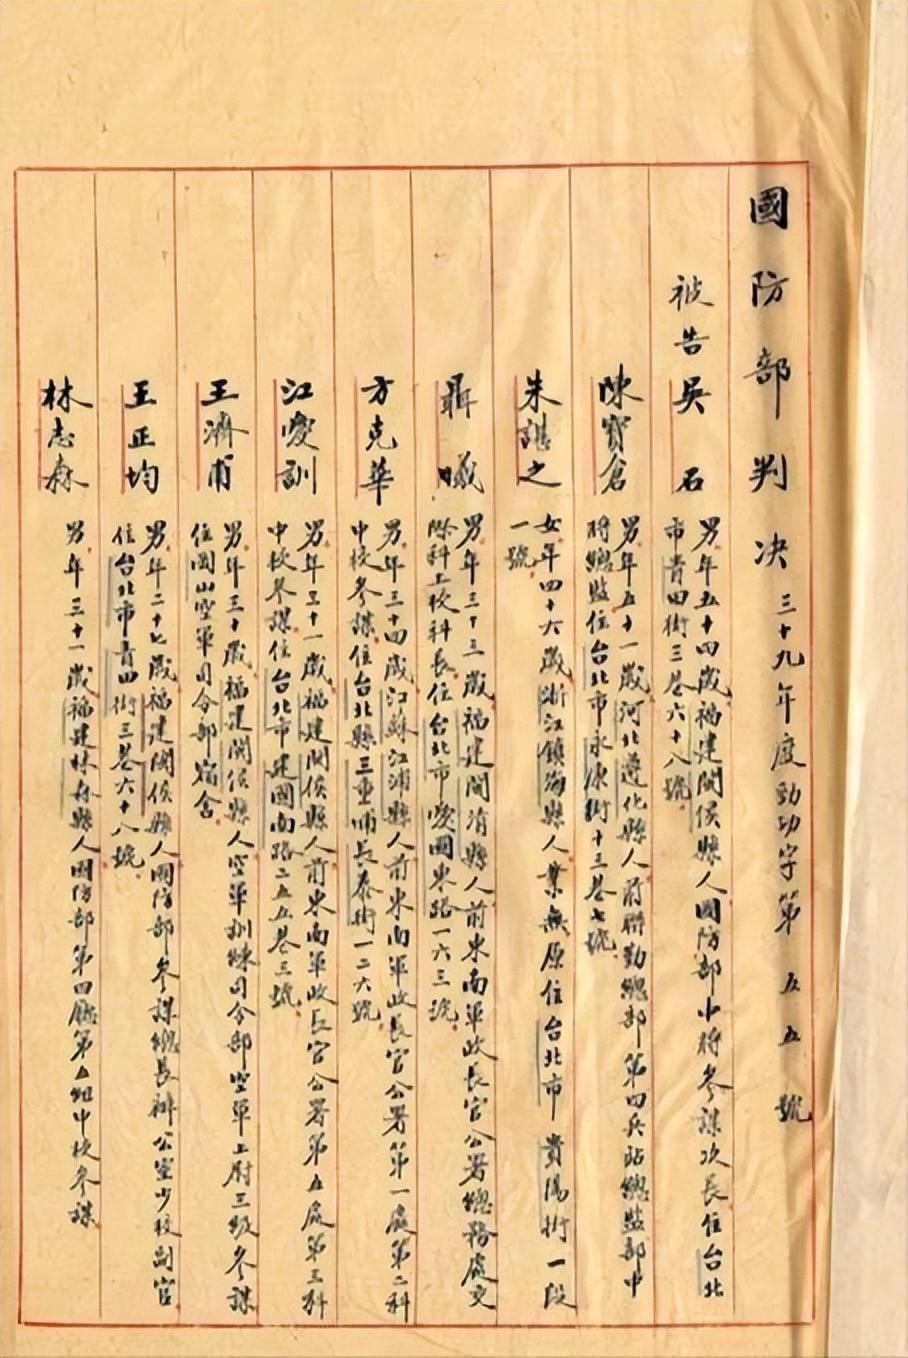 國防部判決 三十九年度勁功字第五五號
被告 吳石 男年五十四歲福建閩侯縣人國防部中將參謀次長住台北
市青田街三巷六十八號
陳寶倉 男年五十一歲河北遵化縣人前聯勤總部第四兵站總監部中
將總監住台北市永康街十三巷七號
朱諶之 女年四十六歲浙江鎮海縣人業無原住台北市貴陽街一段
一號
聶曦 男年三十三歲福建閩清縣人前東南軍政長官公署總務處交
際科上校科長住台北市愛國東路一六三號
方克華 男年三十四歲江蘇江浦縣人前東南軍政長官公署第一處第二科
中校參謀住台北縣三重埔長泰街一二六號
江愛訓 男年三十一歲福建閩侯縣人前東南軍政長官公署第五處第三科
中校參謀住台北市建國南路二五五巷三號
王濟甫 男年三十歲福建閩侯縣人空軍訓練司令部空軍上尉三級參謀
住岡山空軍司令部宿舍
王正均 男年二十七歲福建閩侯縣人國防部參謀總長辦公室少校副官
住台北市青田街三巷六十八號
林志森 男年三十一歲福建林森縣人國防部第四廳第五組中校參謀